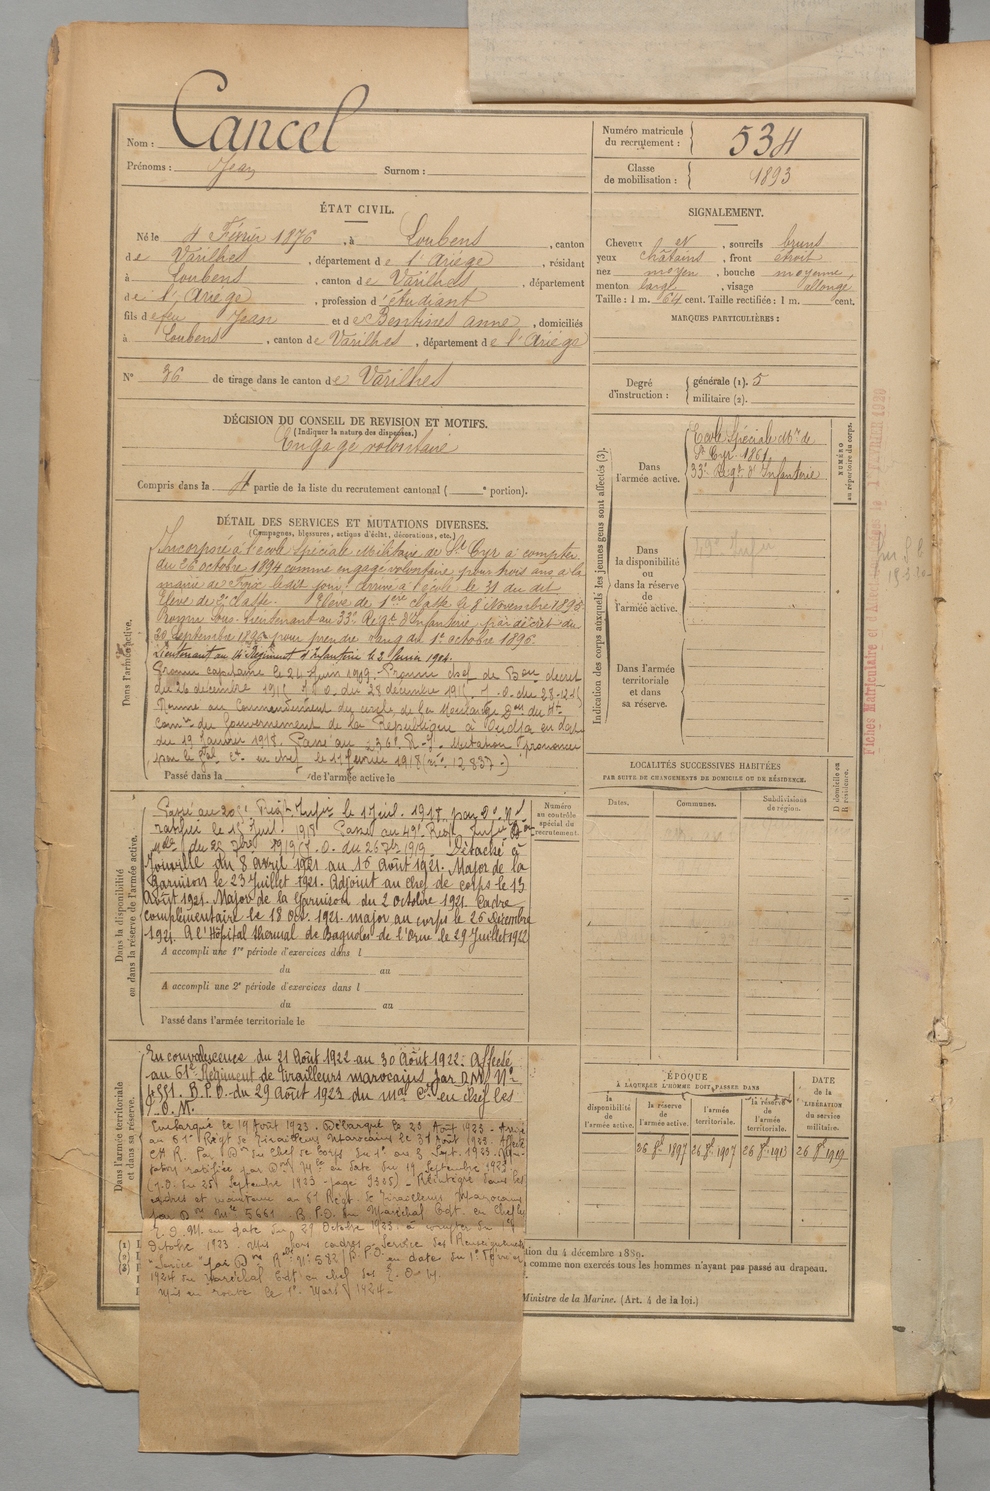 Nom : Cancel
Prénoms : Jean Surnom :
Numéro matricule du recrutement : 534
Classe de mobilisation : 1893
ÉTAT CIVIL.
Né le 4 Février 1876, à Loubens, canton
de Varilhes, département de l'Ariège, résidant
à Loubens, canton de Varilhes, département
de l'Ariège, profession d'étudiant
fils de feu Jean et de Bentines anne, domiciliés
à Loubens, canton de Varilhes, département de l'Ariège
N° 36 de tirage dans le canton de Varilhes
SIGNALEMENT.
Cheveux et, sourcils bruns
yeux châtains, front étroit
nez moyen, bouche moyenne,
menton large, visage allongé
Taille : 1 m. 64 cent. Taille rectifiée : 1 m. cent.
MARQUES PARTICULIÈRES :
DÉCISION DU CONSEIL DE REVISION ET MOTIFS.
(Indiquer la nature des dispenses.)
Engagé volontaire
Compris dans la partie de la liste du recrutement cantonal ( e portion).
Degré d'instruction : générale (1). 5
militaire (2).
Indication des corps auxquels les jeunes gens sont affectés (3).
NUMÉRO au répertoire du corps.
Dans l'armée active.
Ecole Spéciale Mre de
St Cyr. 1861
33e Régt d'Infanterie
Dans la disponibilité ou dans la réserve de l'armée active.
49e Infie
Dans l'armée territoriale et dans sa réserve.
DÉTAIL DES SERVICES ET MUTATIONS DIVERSES.
(Campagnes, blessures, actions d'éclat, décorations, etc.)
Dans l'armée active.
Incorporé à l'école Spéciale Militaire de St Cyr à compter
du 26 octobre 1894 comme engagé volontaire, pour trois ans à la
mairie de Foix, ledit jour, arrivé à l'école le 31 du dit
Elève de 2e classe. Elève de 1ère classe le 8 Novembre 1895
Promu sous-Lieutenant au 33e Régt d'Infanterie, par décret du
30 Septembre 1896 pour prendre rang du 1er octobre 1896
Lieutenant au Régiment d'Infanterie le
Promu capitaine le 24 Juin Promu chef de Bon décret
du 26 décembre 191 J.O. du 28 décembre 191
Nommé au Commandement du cercle de la Don du Ht
Comre du Gouvernement de la République à Oudjda en date
du 19 janvier 1918. Passé au 236e R.I. Mutation prononcée
par le Gal Ct en chef le 1er février 1918 (no 12.837.)
Passé dans la de l'armée active le
Dans la disponibilité ou dans la réserve de l'armée active.
Passé au 20 Régt Infie le 1 Juil. 1918, par
le 15 Juil. 1918 Passé au 49e Régt Infie
du 25 7bre 1919 J.O. du 26 7bre 1919. Détaché à
Joinville du 8 avril 1921 au 16 Août 1921. Major de la
Garnison le 23 Juillet 1921. Adjoint au chef de corps le 13
Août 1921. Major de la Garnison du 2 octobre 1921. Cadre
complémentaire le 18 Oct. 1921. major au corps le 26 Décembre
1921. A l'Hôpital thermal de Bagnoles de l'Orne le 29 Juillet 1922
A accompli une 1re période d'exercices dans l
du au
A accompli une 2e période d'exercices dans l
du au
Passé dans l'armée territoriale le
Numéro au contrôle spécial du recrutement.
LOCALITÉS SUCCESSIVES HABITÉES
PAR SUITE DE CHANGEMENTS DE DOMICILE OU DE RÉSIDENCE.
Dates. Communes. Subdivisions de région.
D domicile ou R résidence.
Dans l'armée territoriale et dans sa réserve.
En convalescence du 21 Août 1922 au 30 Août 1922. Affecté
au 61e Régiment de Tirailleurs marocains par D.M. No
4551. B.P.O. du 29 Août 1923 du mal Ct en chef les
T.O.M.
Embarqué le 19 Août 1923. Débarqué le 23 Août 1923. Arrivé
au 61e Régt de Tirailleurs Marocains le 31 Août 1923. Affecté
C.H.R. Par Don du Chef de Corps du 1er au 3 Sept. 1923. Mu-
tation ratifiée par Don Mlle en date du 19 Septembre 1923
(J.O. du 25 Septembre 1923 - page 9325) - Réintégré dans les
cadres et maintenu au 61e Régt de Tirailleurs Marocains
par Don Mlle 5661 B.P.O. du Maréchal Cdt en chef les
T.O.M. en date du 29 Octobre 1923, à compter du 1er
Octobre 1923. Mis hors cadres - Service des Renseignements
"Service" par Don No 582/B.P.O. en date du 1er Février
1924 du Maréchal Cdt en chef les T.O.M.
Mis en route le 1er Mars 1924.
ÉPOQUE
À LAQUELLE L'HOMME DOIT PASSER DANS
la disponibilité de l'armée active.
la réserve de l'armée active.
l'armée territoriale.
la réserve de l'armée territoriale.
DATE de la LIBÉRATION du service militaire.
26 8bre 1897 26 8bre 1907 26 8bre 1913 26 8bre 1919
(1)
(2)
(3)
tion du 4 décembre 1889.
comme non exercés tous les hommes n'ayant pas passé au drapeau.
Ministre de la Marine. (Art. 4 de la loi.)